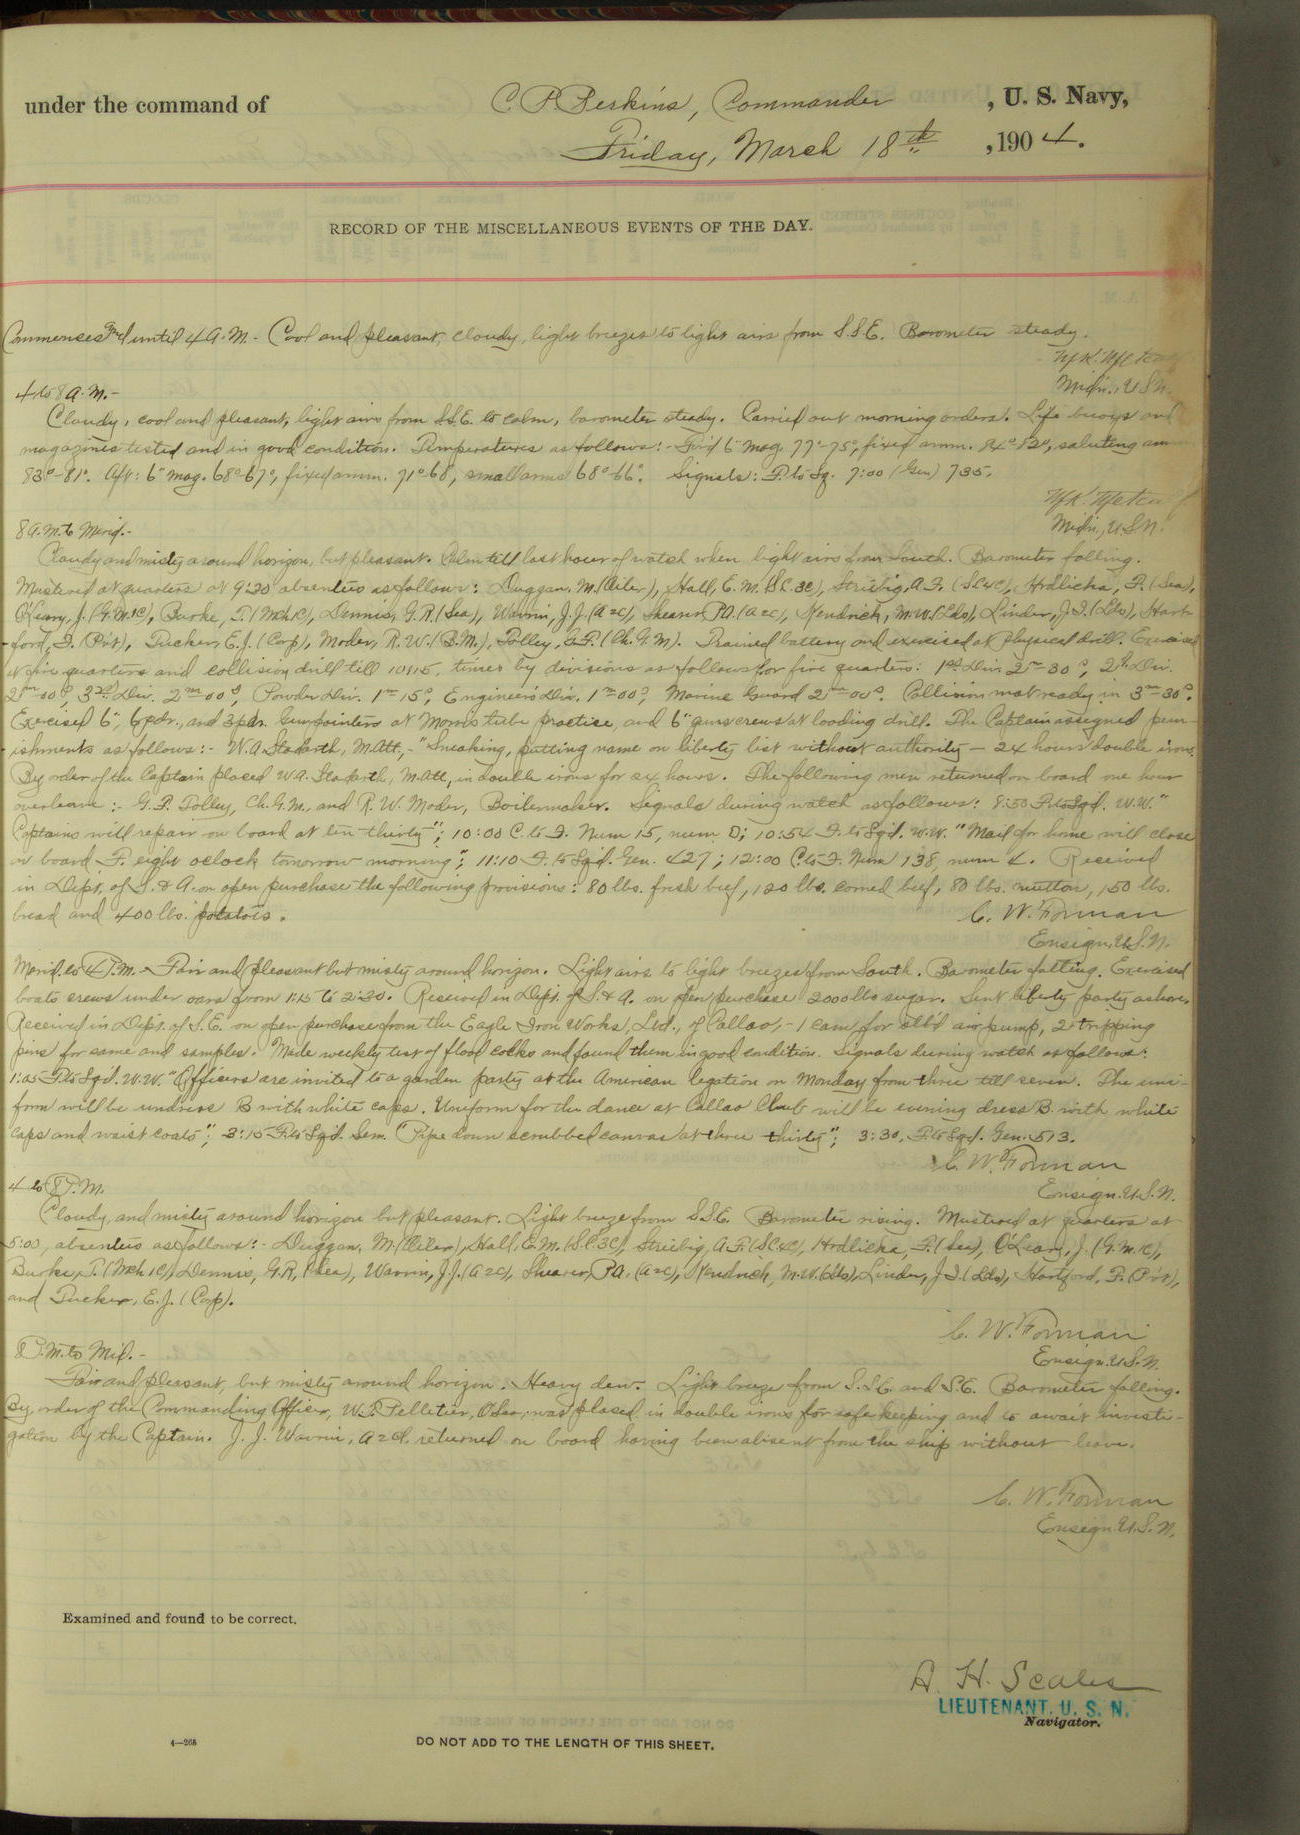 under the command of C. P. Perkins, Commander, U. S. Navy,
Friday, March 18th, 1904.
RECORD OF THE MISCELLANEOUS EVENTS OF THE DAY.
Commences and until 4 A.M. - Cool and pleasant, cloudy, light breezes to light airs from S.S.E. Barometer steady.
Midn., U.S.N.
4 to 8 A.M.-
Cloudy, cool and pleasant, light airs from S.S.E. to calm, barometer steady. Carried out morning orders. Life buoys and
magazines tested and in good condition. Temperatures as follows:- For'd 6" mag. 77°-75°, fixed amm. saluting amm
83°-81°. Aft: 6" mag. 68°-67°, fixed amm. 71°-68, small arms 68°-66°. Signals: F. to Sq. 7:00 (Gen) 735.
Midn., U.S.N.
8 A.M. to Merid.-
Cloudy and misty around horizon, but pleasant. Calm till last hour of watch when light airs from South. Barometer falling.
Mustered at quarters at 9:30 absentees as follows: Duggan, M. (Oiler), Hall, E.M. (S.C.3C), Striebig, A.F. (S.C.4C), Hrdlicka, F. (Sea),
O'Leary, J. (G.M.1C), Burke, T. (Mch.1C), Dennis, G.R. (Sea), Wavrin, J.J. (A2C), Shearer, P.A. (A2C), Kendrick, M.W. (Lds), Linder, J.I. (Lds), Hart-
ford, F. (Pvt), Tucker, E.J. (Corp), Moder, R.W. (B.M.), Polley, G.P. (Ch.G.M). Trained battery and exercised at physical drill. Exercised
at fire quarters and collision drill till 10:15, times by divisions as follows for fire quarters: 1st Div. 2m-30s, 2nd Div.
2m-00s, 3rd Div. 2m-00s, Powder Div. 1m-15s, Engineer's Div. 1m-00s, Marine Guard 2m-00s. Collision mat ready in 3m-30s.
Exercised 6", 6 pdr., and 3 pdr. Gun pointers at Morris tube practise, and 6" guns crews at loading drill. The Captain assigned pun-
ishments as follows:- W.A. M.Att,-"Sneaking, putting name on liberty list without authority - 24 hours double irons.
By order of the Captain placed W.A. M.Att, in double irons for 24 hours. The following men returned on board one hour
overleave:- G.P. Polley, Ch.G.M., and R.W. Moder, Boilermaker. Signals during watch as follows: 8:50 F. to Sq'd. W.W."
Captains will repair on board at ten thirty"; 10:00 C. to F. Num 15, num D; 10:54 F. to Sq'd. W.W. "Mail for home will close
on board F. eight oclock tomorrow morning"; 11:10 F. to Sq'd. Gen. 427; 12:00 C. to F. Num 138, num 4. Received
in Dept. of S. & A. on open purchase the following provisions: 80 lbs. fresh beef, 120 lbs. corned beef, 80 lbs. mutton, 150 lbs.
bread and 400 lbs. potatoes.
C. W. Forman
Ensign, U.S.N.
Merid. to 4 P.M. - Fair and pleasant but misty around horizon. Light airs to light breezes from South. Barometer falling. Exercised
boats crews under oars from 1:15 to 2:30. Received in Dept. of S. & A. on open purchase 2000 lbs sugar. Sent liberty party ashore.
Received in Dept. of S.E. on open purchase from the Eagle Iron Works, Ltd., of Callao, - 1 cam for stb'd air pump, 2 tripping
pins for same and samples. Made weekly test of flood cocks and found them in good condition. Signals during watch as follows:
1:05 F. to Sq'd. W.W. "Officers are invited to a garden party at the American legation on Monday from three till seven. The uni-
form will be undress B with white caps. Uniform for the dance at Callao Club will be evening dress B with white
caps and waist coats"; 3:15 F. to Sq'd. Sem. "Pipe down scrubbed canvas at three thirty"; 3:30, F. to Sq'd. Gen. 513.
C. W. Forman
Ensign, U.S.N.
4 to 8 P.M.
Cloudy, and misty around horizon but pleasant. Light breeze from S.S.E. Barometer rising. Mustered at quarters at
5:00, absentees as follows:- Duggan, M. (Oiler), Hall, E.M. (S.C.3C), Striebig, A.F. (S.C.4C), Hrdlicka, F. (Sea), O'Leary, J. (G.M.1C),
Burke, T. (Mch 1C), Dennis, G.R. (Sea), Wavrin, J.J. (A2C), Shearer, P.A. (A2C), Kendrick, M.W. (Lds), Linder, J.I. (Lds), Hartford, F. (Pvt),
and Tucker, E.J. (Corp).
C. W. Forman
Ensign, U.S.N.
8 P.M. to Mid.-
Fair and pleasant, but misty around horizon. Heavy dew. Light breeze from S.S.E. and S.E. Barometer falling.
By order of the Commanding Officer, W.P. Pelletier, O.Sea, was placed in double irons for safe keeping and to await investi-
gation by the Captain. J. J. Wavrin, A2Cl. returned on board having been absent from the ship without leave.
C. W. Forman
Ensign, U.S.N.
Examined and found to be correct.
A. H. Scales
LIEUTENANT, U. S. N.
Navigator.
4—268
DO NOT ADD TO THE LENGTH OF THIS SHEET.